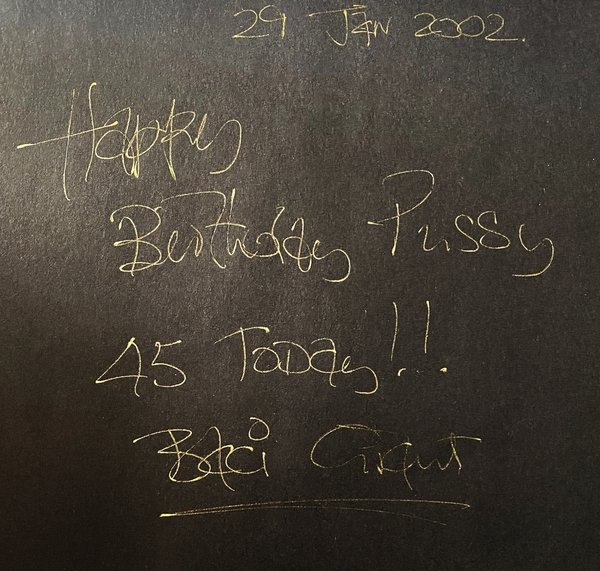 29 JAN 2002.
Happy
Birthday Pussy
45 Today!!
Baci Grant